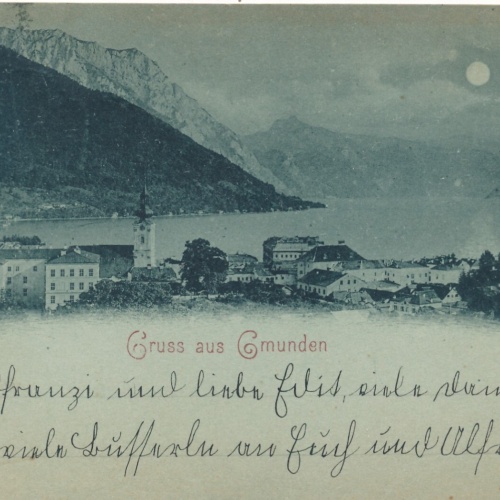 Gruss aus Gmunden
franzi und liebe Edit, viele dan
viele Busserln an Euch und Alfr